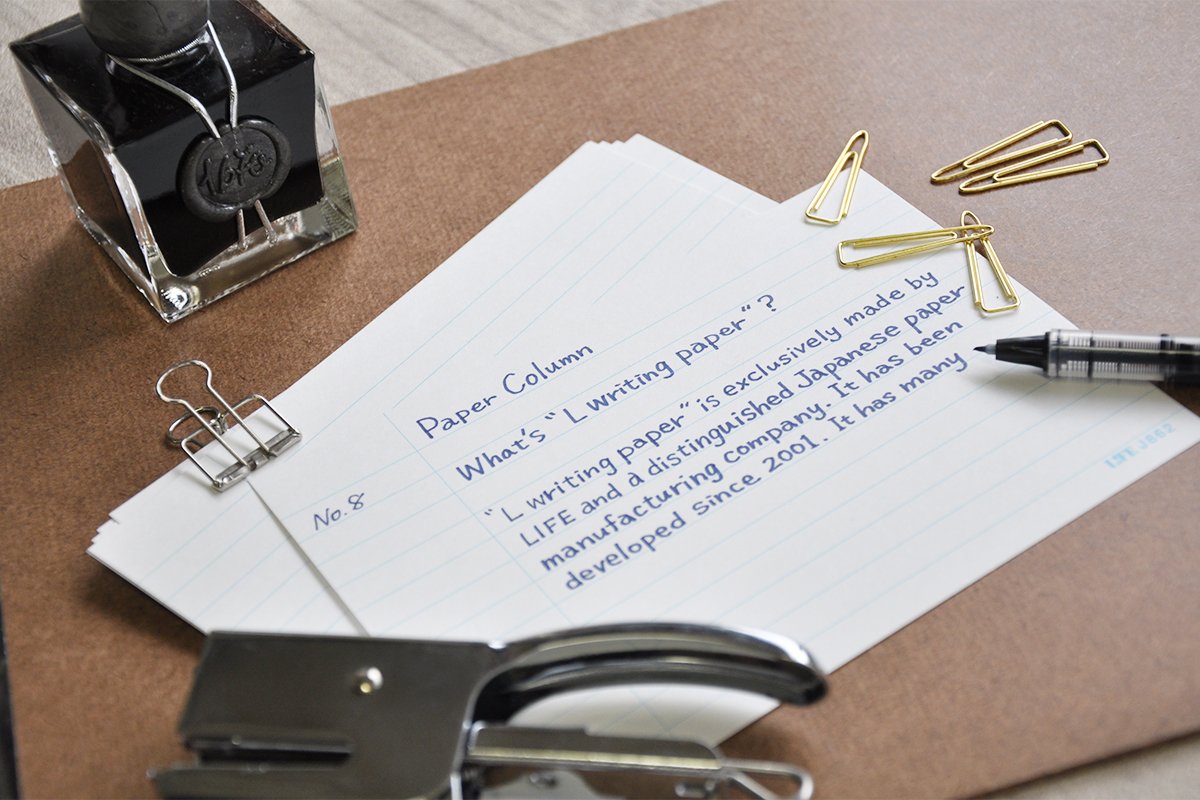 Paper Column
What's "L writing paper"?
No.8
"L writing paper" is exclusively made by
LIFE and a distinguished Japanese paper
manufacturing company. It has been
developed since 2001. It has many
LIFE J862